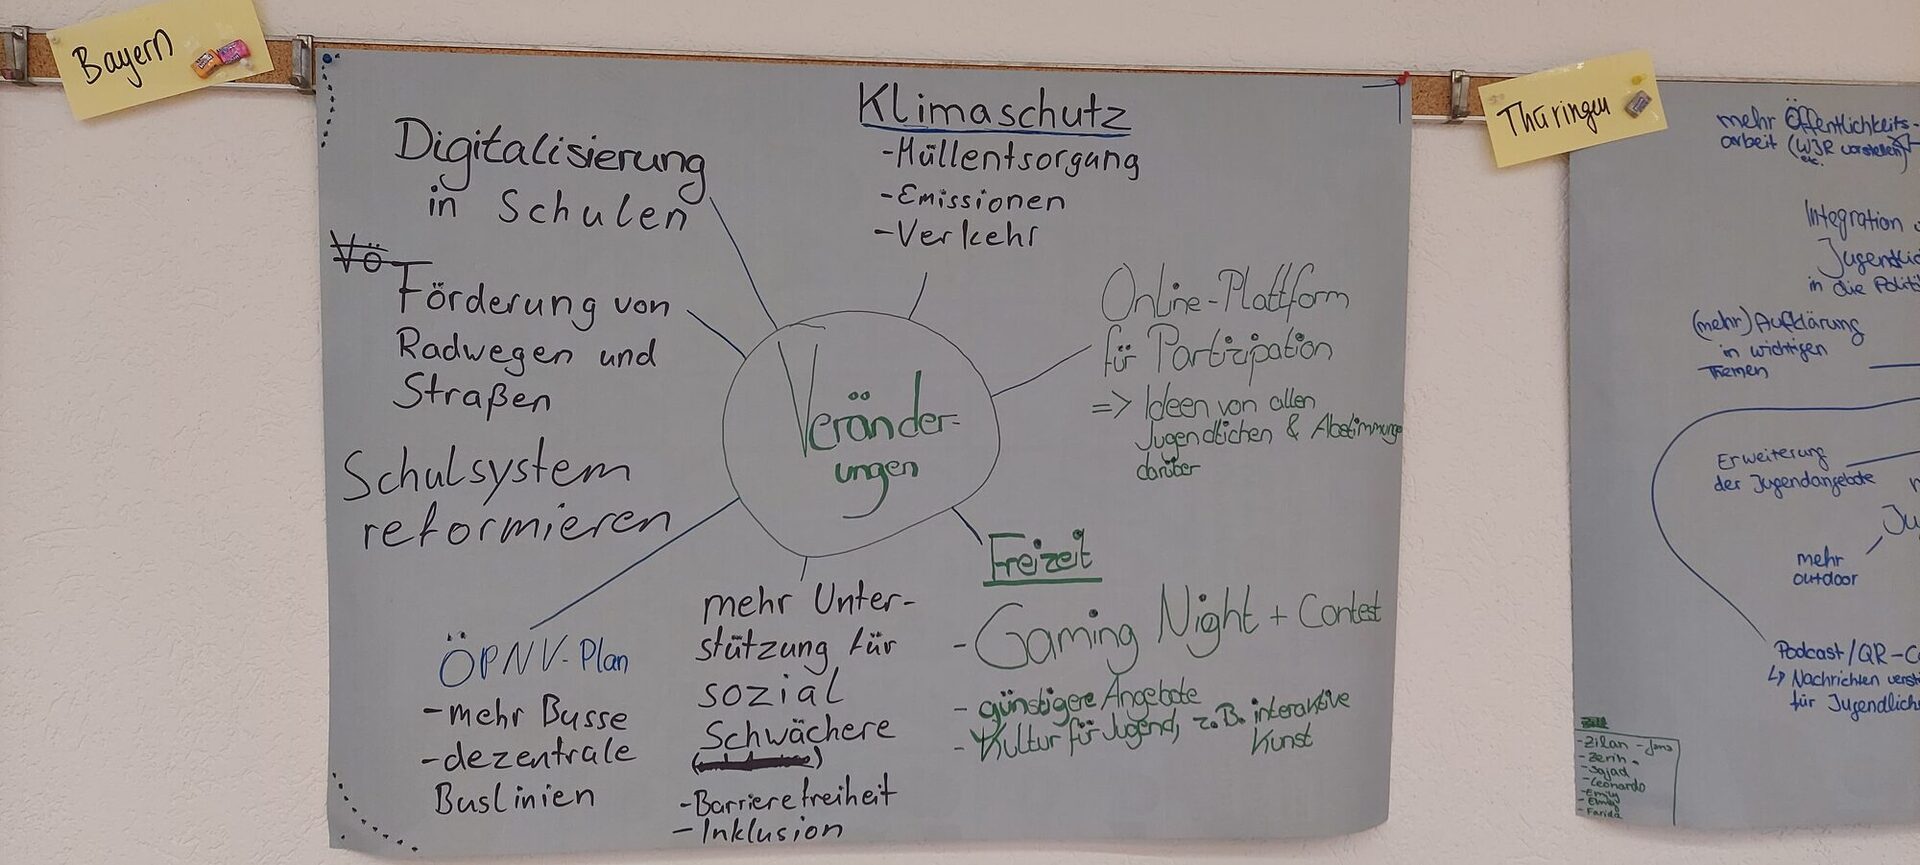 Bayern
Digitalisierung
in Schulen
Vö
Förderung von
Radwegen und
Straßen
Schulsystem
reformieren
ÖPNV-Plan
-mehr Busse
-dezentrale
Buslinien
Klimaschutz
-Müllentsorgung
-Emissionen
-Verkehr
Veränder-
ungen
mehr Unter-
stützung für
sozial
Schwächere
-Barrierefreiheit
-Inklusion
Online-Plattform
für Partizipation
=> Ideen von allen
Jugendlichen & Abstimmunge
darüber
Freizeit
- Gaming Night + Contest
- günstigere Angebote
- Kultur für Jugend, z.B. interaktive
Kunst
Thüringen
mehr Öffentlichkeits-
arbeit (WJR vorstellen)
etc.
Integration
Jugendlic
in die Politi
(mehr) Aufklärung
in wichtigen
Themen
Erweiterung
der Jugendangebote
Ju
mehr
outdoor
Podcast/QR-Co
Nachrichten verst
für Jugendliche
-Zilan -
-Zerin
-Sajad
-Leonardo
-Emily
-Farida